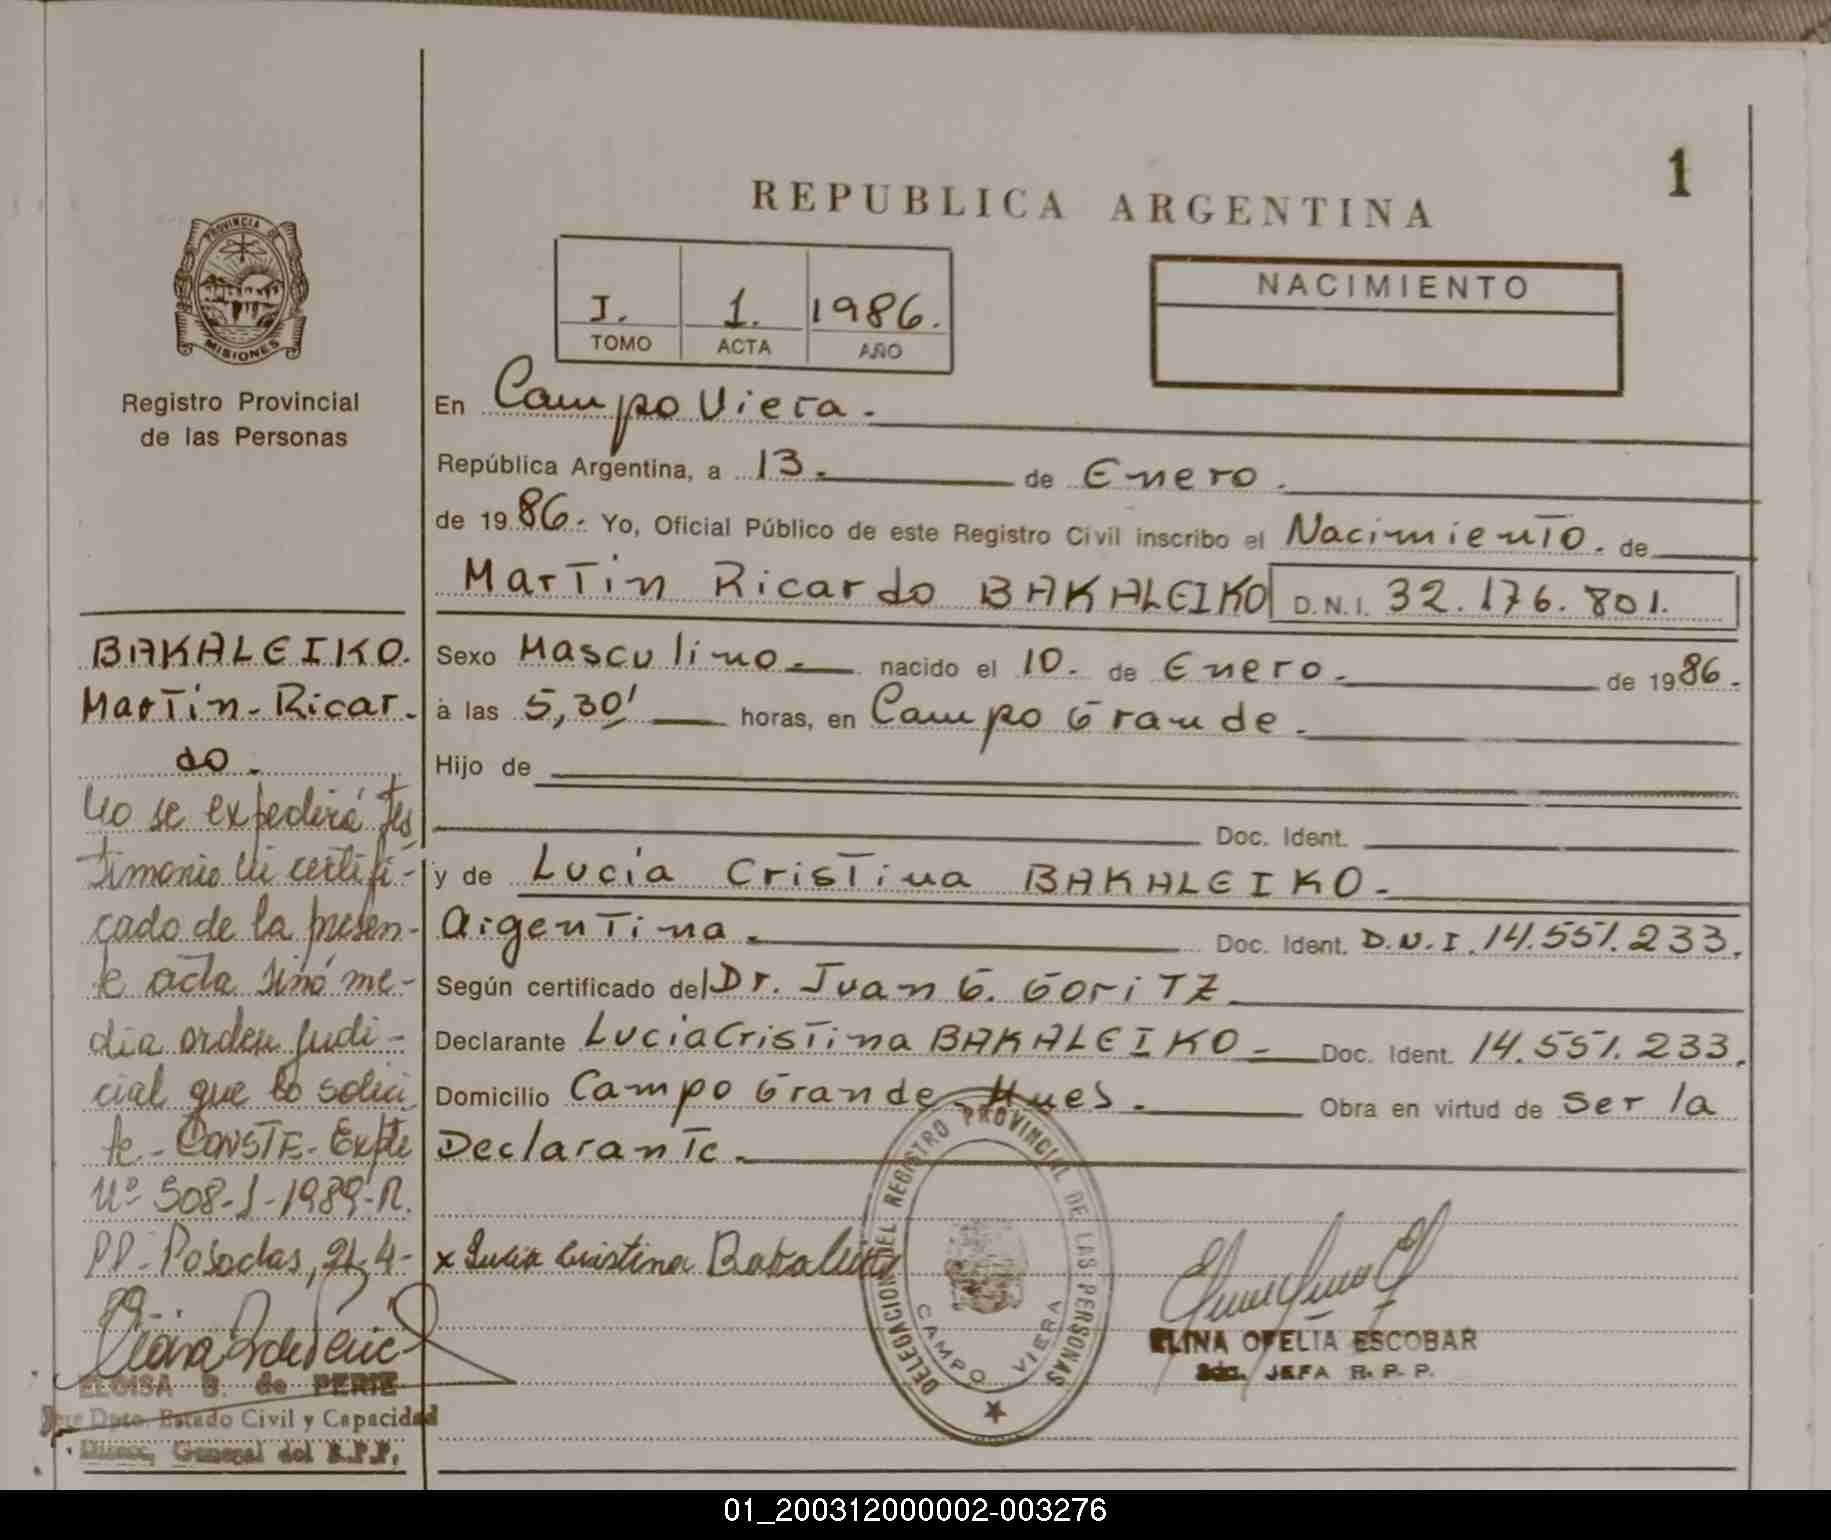 1
REPUBLICA ARGENTINA
PROVINCIA DE
MISIONES
Registro Provincial
de las Personas
I. 1. 1986.
TOMO ACTA AÑO
NACIMIENTO
En Campo Viera.
República Argentina, a 13. de Enero.
de 1986. Yo, Oficial Público de este Registro Civil inscribo el Nacimiento. de
Martin Ricardo BAKALEIKO D.N.I. 32.176.801.
Sexo Masculino. nacido el 10. de Enero. de 1986.
à las 5,30' horas, en Campo Grande.
Hijo de
Doc. Ident.
y de Lucia Cristina BAKALEIKO.
Argentina. Doc. Ident. D.N.I. 14.551.233.
Según certificado del Dr. Juan G. Goritz
Declarante Lucia Cristina BAKALEIKO - Doc. Ident. 14.551.233.
Domicilio Campo Grande - Mnes. Obra en virtud de ser la
Declarante.
BAKALEIKO.
Martin-Ricar-
do.
No se expedirá tes
timonio ni certifi-
cado de la presen-
te acta sinó me-
dia orden judi-
cial que lo solici
te.- CONSTE- Expte
Nº 508-J-1989-R.
PP- Posadas, 21-4-
89-.
ELOISA B. de PERIE
Jefe Dpto. Estado Civil y Capacidad
Direcc. General del R.P.P.
x Lucia Cristina Bakaleiko
DELEGACION DEL REGISTRO PROVINCIAL DE LAS PERSONAS
CAMPO VIERA
ELINA OFELIA ESCOBAR
2da. JEFA R. P. P.
01_200312000002-003276